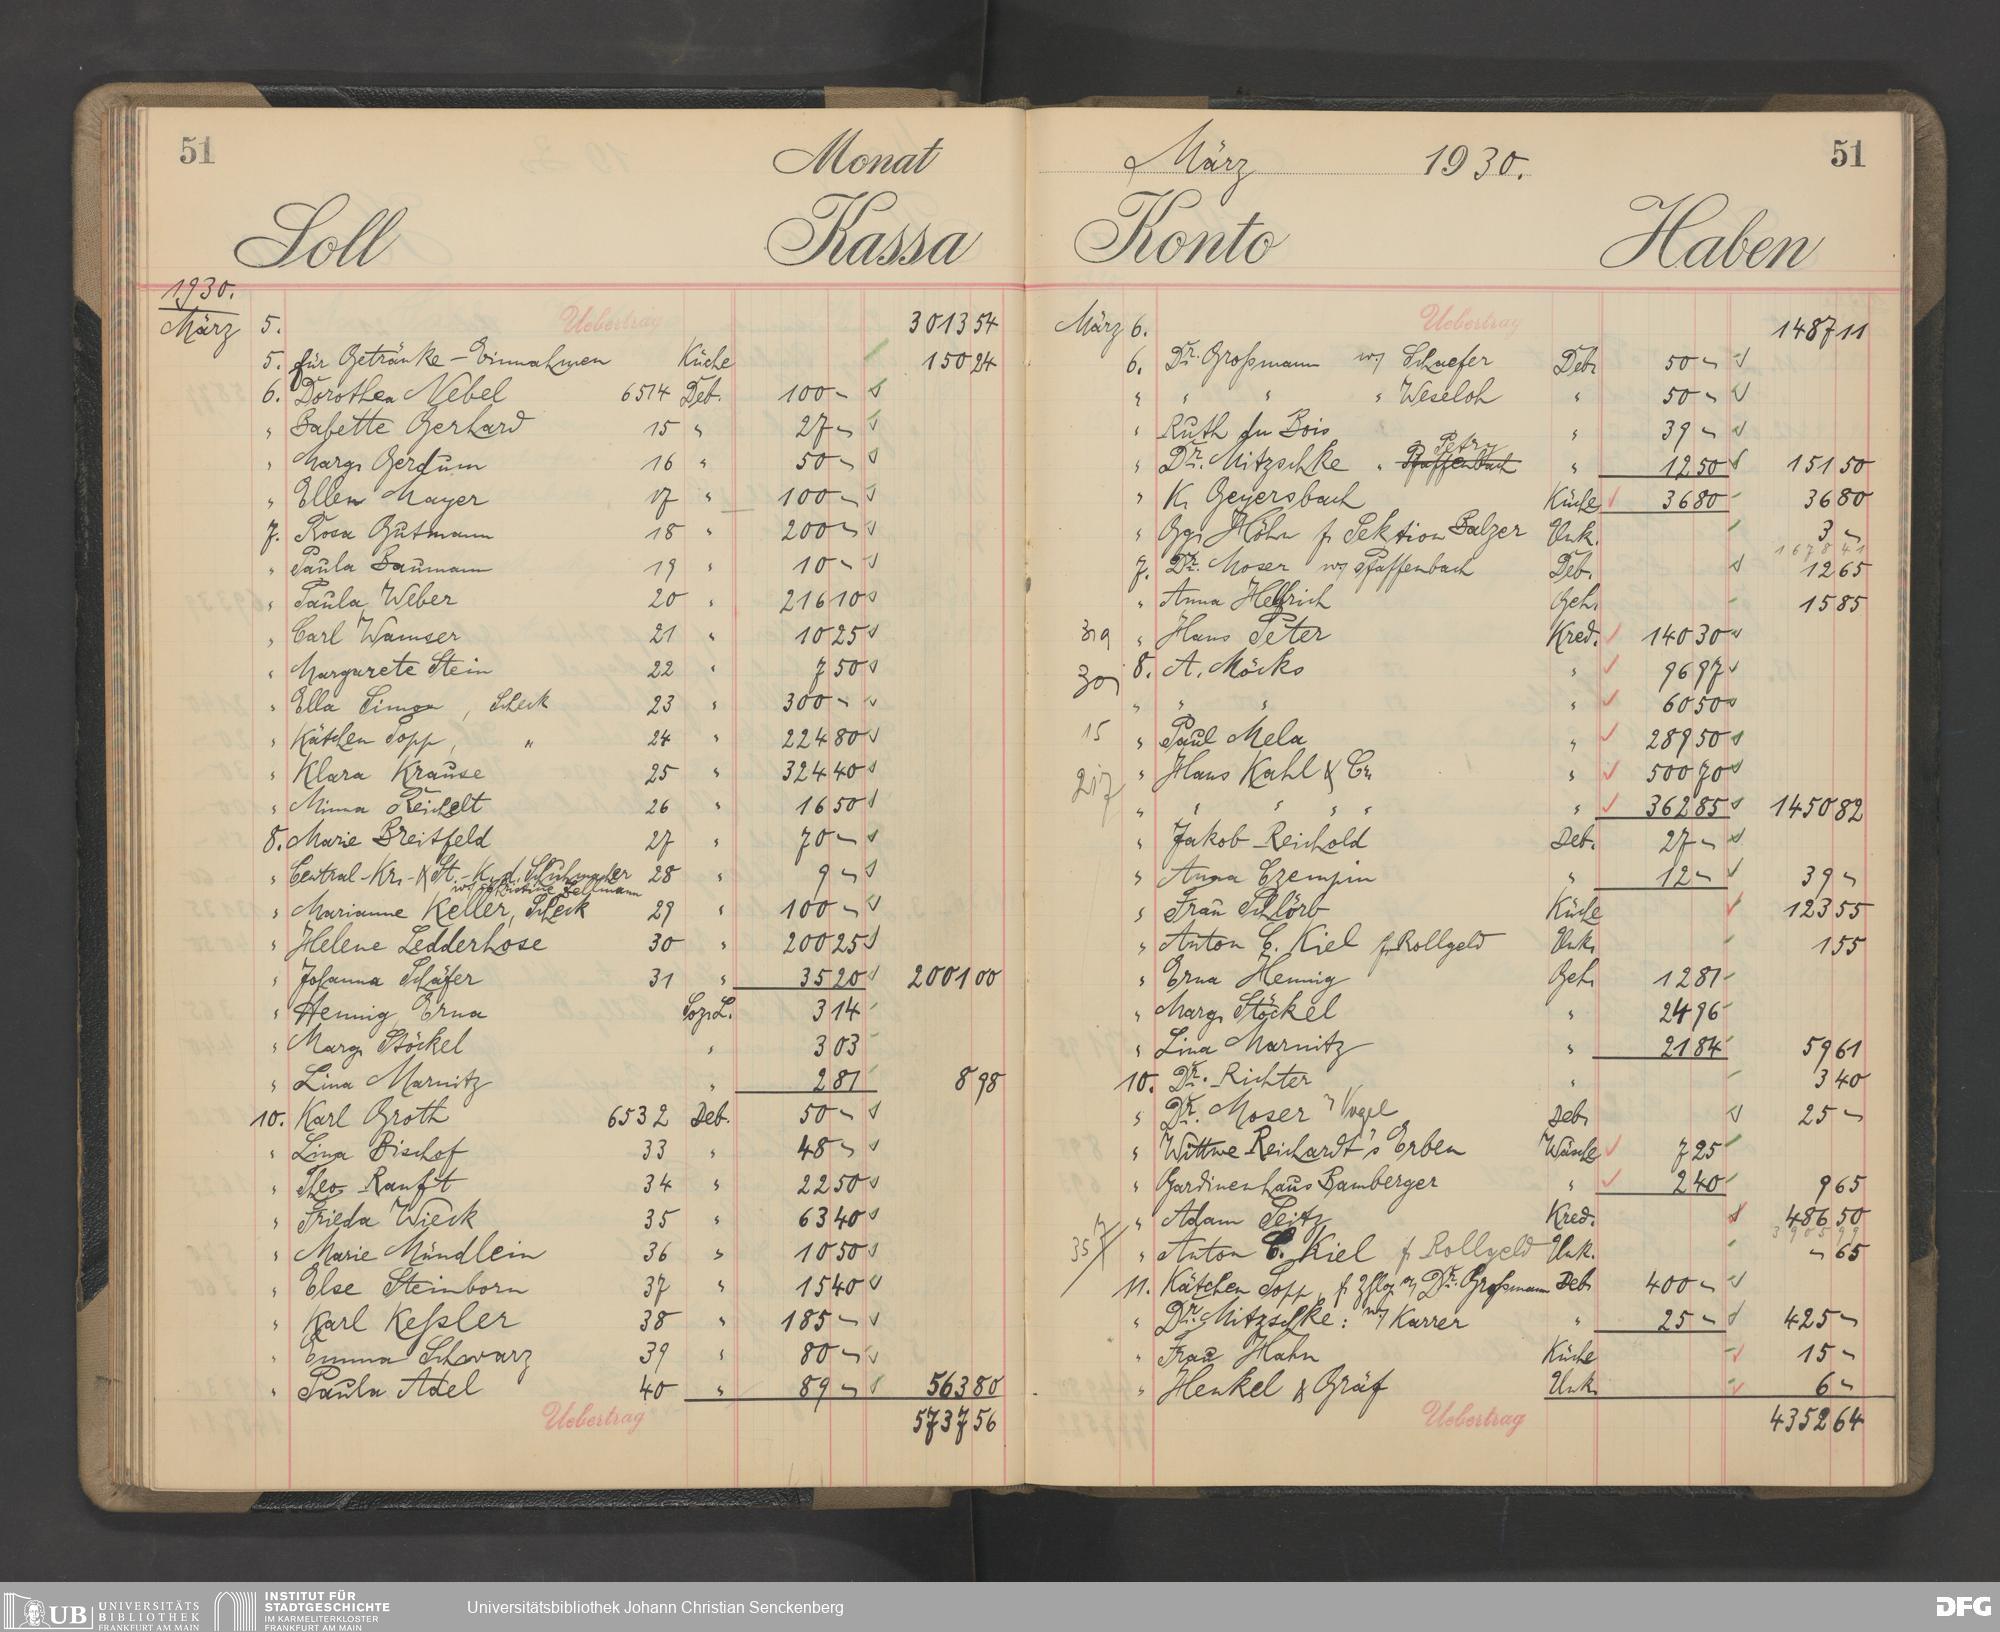 51
Monat
Soll
Kassa
1930.
März 5. Uebertrag 3013 54
5. für Getränke-Einnahmen Küche 150 24
6. Dorothea Nebel 6514 Deb. 100 -
" Babette Gerhard 15 " 27 -
" Marg. Gerdum 16 " 50 -
" Ellen Mayer 17 " 100 -
7. Rosa Gutmann 18 " 200 -
" Paula Baumann 19 " 10 -
" Paula Weber 20 " 216 10
" Carl Wamser 21 " 10 25
" Margarete Stein 22 " 7 50
" Ella Simon, Scheck 23 " 300 -
" Kätchen Sopp, " 24 " 224 80
" Klara Krause 25 " 324 40
" Minna Reichelt 26 " 16 50
8. Marie Breitfeld 27 " 70 -
" Central-Kr.-& St.-K. d. Schuhmacher 28 " 9 -
w/ Christine Bellmann
" Marianne Keller, Scheck 29 " 100 -
" Helene Ledderhose 30 " 200 25
" Johanna Schäfer 31 " 35 20 2001 00
" Hennig, Erna Soz. L. 3 14
" Marg. Stöckel " 3 03
" Lina Marnitz " 2 81 8 98
10. Karl Groth 6532 Deb. 50 -
" Lina Bischof 33 " 48 -
" Theo Ranft 34 " 22 50
" Frieda Wieck 35 " 63 40
" Marie Mündlein 36 " 10 50
" Else Steinborn 37 " 15 40
" Karl Keßler 38 " 185 -
" Emma Schwarz 39 " 80 -
" Paula Adel 40 " 89 - 563 80
Uebertrag 5737 56
März 1930.
51
Konto
Haben
März 6. Uebertrag 1487 11
6. Dr. Großmann w/ Schaefer Deb. 50 -
" " " " Weseloh " 50 -
" Ruth du Bois " 39 -
Petry
" Dr. Mitzschke " Pfaffenbach " 12 50 151 50
" K. Geyersbach Küche 36 80 36 80
" Gg. Höhn f. Sektion Balzer Unk. 3 -
1678 41
7. Dr. Moser w/ Pfaffenbach Deb. 12 65
" Anna Helfrich Geh. 15 85
319 " Hans Peter Kred. 140 30
8. A. Möcks " 96 97
" " " " 60 50
15 " Paul Mela " 289 50
217 " Hans Kahl & Co. " 500 70
" " " " " " 362 85 1450 82
" Jakob Reichold Deb. 27 -
" Anna Czempin " 12 - 39 -
" Frau Schlörb Küche 123 55
" Anton C. Kiel f. Rollgeld Unk. 1 55
" Erna Hennig Geh. 12 81
" Marg. Stöckel " 24 96
" Lina Marnitz " 21 84 59 61
10. Dr. Richter " 3 40
" Dr. Moser " Vogel Deb. 25 -
" Wittwe Reichardt's Erben Wäsche 7 25
" Gardinenhaus Bamberger " 2 40 9 65
" Adam Seitz Kred. 486 50
3905 99
" Anton C. Kiel f. Rollgeld Unk. - 65
11. Kätchen Sopp, f. Zhlg. a/ Dr. Großmann Deb. 400 -
" Dr. Mitzschke: w/ Karrer " 25 - 425 -
" Frau Hahn Küche 15 -
" Henkel & Gräf Unk. 6 -
Uebertrag 4352 64
UB UNIVERSITÄTS
BIBLIOTHEK
FRANKFURT AM MAIN
INSTITUT FÜR
STADTGESCHICHTE
IM KARMELITERKLOSTER
FRANKFURT AM MAIN
Universitätsbibliothek Johann Christian Senckenberg
DFG